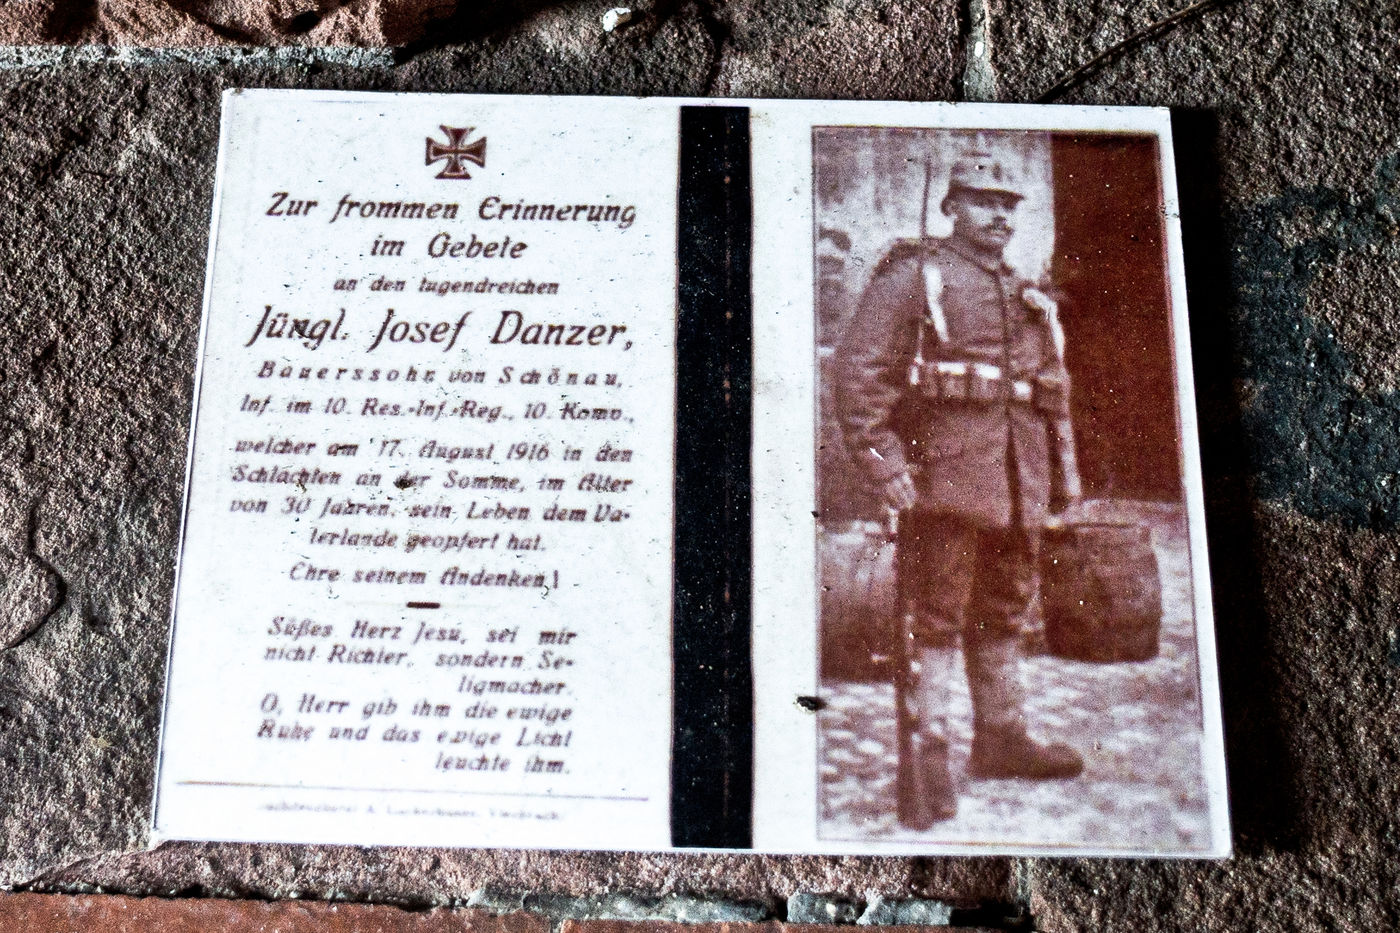 Zur frommen Erinnerung
im Gebete
an den tugendreichen
Jüngl. Josef Danzer,
Bauerssohn von Schönau,
Inf. im 10. Res.-Inf.-Reg., 10. Komp.,
welcher am 17. August 1916 in den
Schlachten an der Somme, im Alter
von 30 Jahren, sein Leben dem Va-
terlande geopfert hat.
Ehre seinem Andenken!
Süßes Herz Jesu, sei mir
nicht Richter, sondern Se-
ligmacher.
O, Herr gib ihm die ewige
Ruhe und das ewige Licht
leuchte ihm.